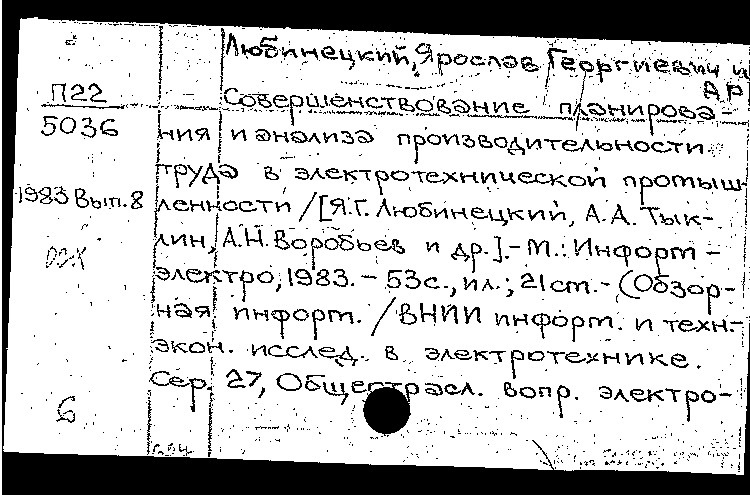 Любинецкий, Ярослав Георгиевич и др
П22 Совершенствование планирова-
5036 ния и анализа производительности
труда в электротехнической промыш-
1983 Вып. 8 ленности /[Я.Г. Любинецкий, А.А. Тык-
лин, А.Н. Воробьев и др.].- М.: Информ-
электро, 1983. - 53с., ил.; 21см. - (Обзор-
ная информ. / ВНИИ информ. и техн-
экон. исслед. в электротехнике.
Сер. 27, Общеотрасл. вопр. электро-
6